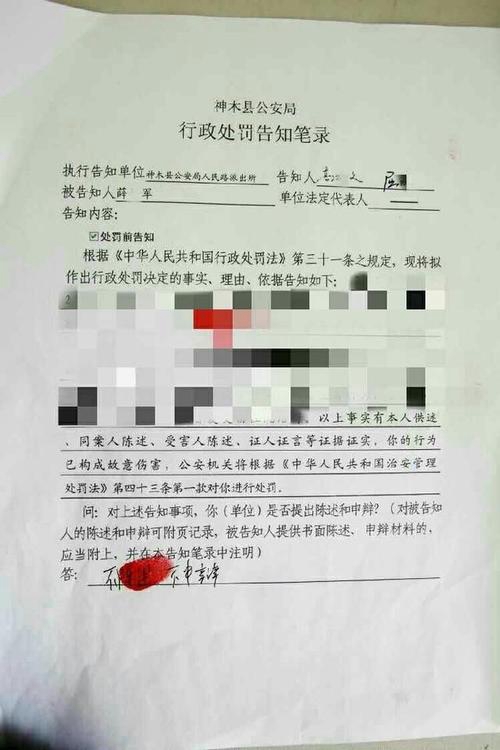 神木县公安局
行政处罚告知笔录
执行告知单位神木县公安局人民路派出所 告知人
被告知人薛 军 单位法定代表人 —
告知内容:
☑处罚前告知
根据《中华人民共和国行政处罚法》第三十一条之规定,现将拟
作出行政处罚决定的事实、理由、依据告知如下:
以上事实有本人供述
、同案人陈述、受害人陈述、证人证言等证据证实,你的行为
已构成故意伤害,公安机关将根据《中华人民共和国治安管理
处罚法》第四十三条第一款对你进行处罚。
问:对上述告知事项,你(单位)是否提出陈述和申辩?(对被告知
人的陈述和申辩可附页记录,被告知人提供书面陈述、申辩材料的,
应当附上,并在本告知笔录中注明)
答: 不 不申辩